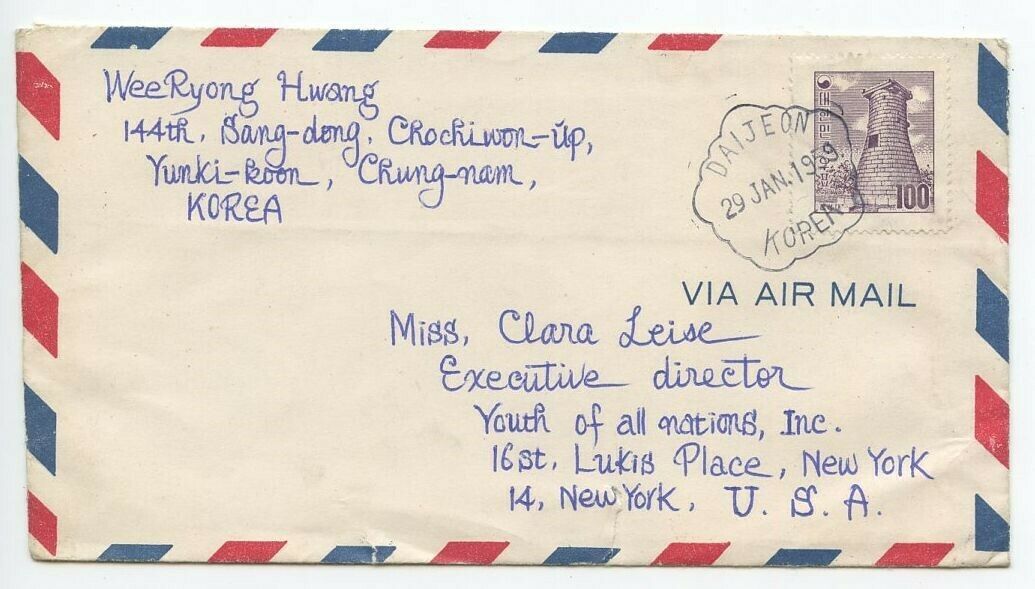 WeeRyong Hwang
144th, Sang-dong, Chochiwon-üp,
Yunki-koon, Chung-nam,
KOREA
DAIJEON
29 JAN. 1959
KOREA
100
VIA AIR MAIL
Miss, Clara Leise
Executive director
Youth of all nations, Inc.
16st, Lukis Place, New York
14, New York, U. S. A.